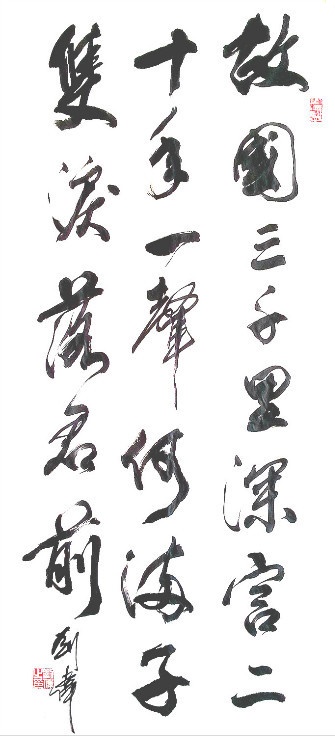 故國三千里深宮二
十年一聲何滿子
雙淚落君前